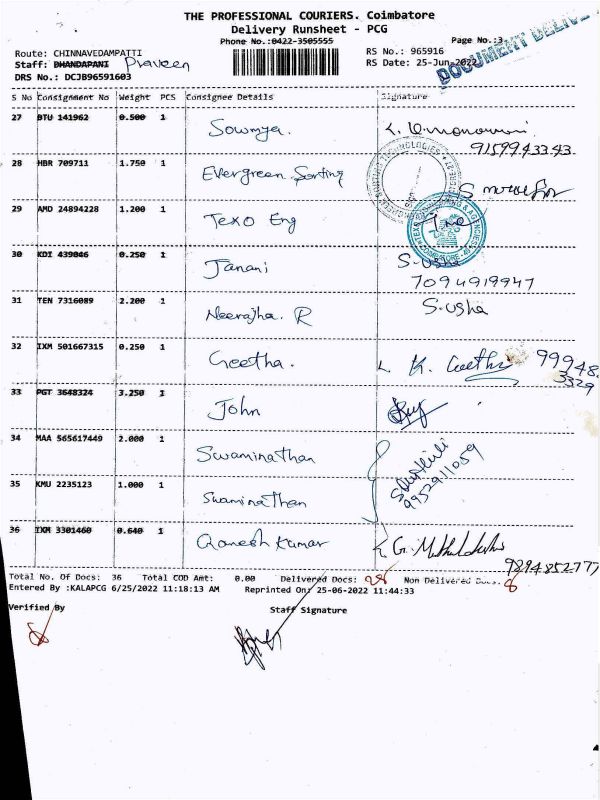 THE PROFESSIONAL COURIERS. Coimbatore
Delivery Runsheet - PCG
Phone No.:0422-3505555
Page No.:3
DOCUMENT DELIVE
Route: CHINNAVEDAMPATTI
RS No.: 965916
Staff: DHANDAPANI Praveen
RS Date: 25-Jun-2022
DRS No.: DCJB96591603
S No Consignment No Weight PCS Consignee Details Signature
27 BTU 141962 0.500 1 Sowmya.
9159943343
28 HBR 709711 1.750 1 Evergreen Sorting
29 AMD 24894228 1.200 1 Texo Eng
30 KDI 439046 0.250 1 Janani S-usha
7094919947
31 TEN 7316089 2.200 1 Neerajha. R S-usha
32 IXM 501667315 0.250 1 Geetha. K. Geetha 99948
3329
33 PGT 3648324 3.250 1 John
34 MAA 565617449 2.000 1 Swaminathan
9952911059
35 KMU 2235123 1.000 1 Swaminathan
36 IXM 3301460 0.640 1 Ganesh Kumar
9894852777
Total No. Of Docs: 36 Total COD Amt: 0.00 Delivered Docs: 28 Non Delivered Docs. 8
Entered By :KALAPCG 6/25/2022 11:18:13 AM Reprinted On: 25-06-2022 11:44:33
Verified By Staff Signature